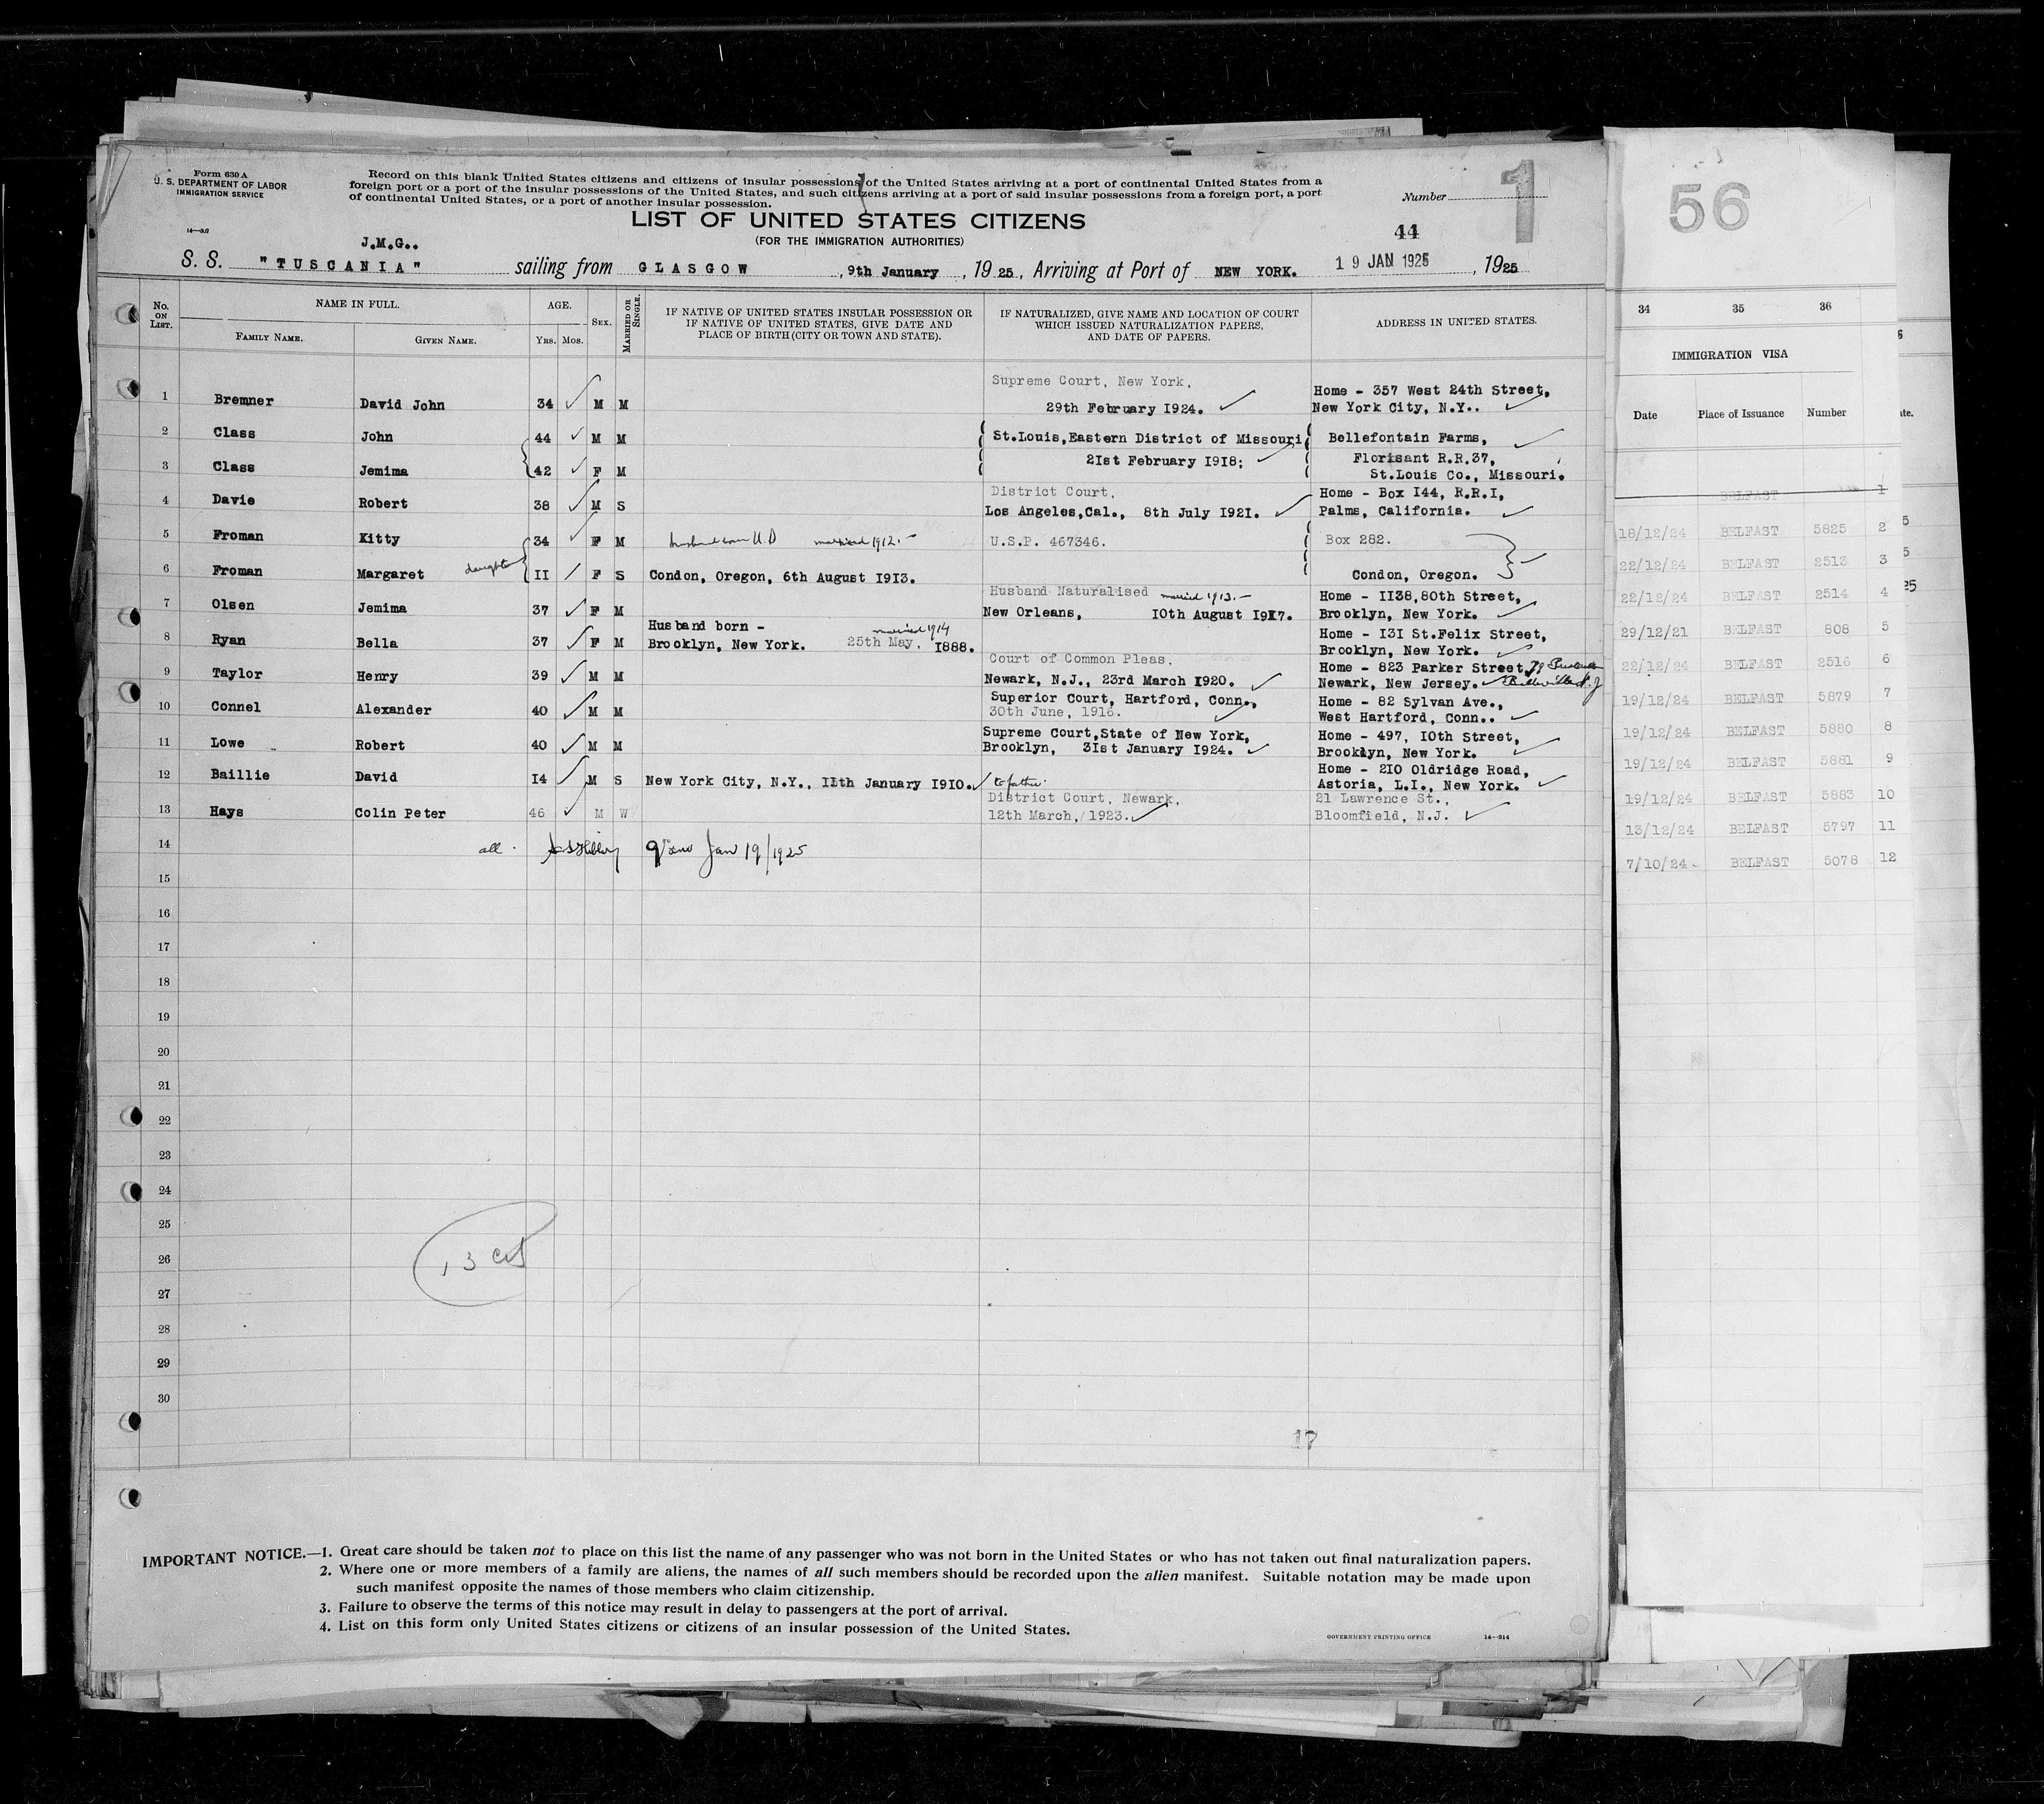 Form 630 A
U. S. DEPARTMENT OF LABOR
IMMIGRATION SERVICE
Record on this blank United States citizens and citizens of insular possessions of the United States arriving at a port of continental United States from a
foreign port or a port of the insular possessions of the United States, and such citizens arriving at a port of said insular possessions from a foreign port, a port
of continental United States, or a port of another insular possession.
Number
1
LIST OF UNITED STATES CITIZENS
(FOR THE IMMIGRATION AUTHORITIES)
44
J.M.G..
S. S. "TUSCANIA" sailing from GLASGOW, 9th January, 1925, Arriving at Port of NEW YORK. 19 JAN 1925, 1925
No. ON LIST. NAME IN FULL. AGE. SEX. MARRIED OR SINGLE. IF NATIVE OF UNITED STATES INSULAR POSSESSION OR IF NATIVE OF UNITED STATES, GIVE DATE AND PLACE OF BIRTH (CITY OR TOWN AND STATE). IF NATURALIZED, GIVE NAME AND LOCATION OF COURT WHICH ISSUED NATURALIZATION PAPERS, AND DATE OF PAPERS. ADDRESS IN UNITED STATES.
FAMILY NAME. GIVEN NAME. YRS. MOS.
1 Bremner David John 34 M M Supreme Court, New York, 29th February 1924. Home - 357 West 24th Street, New York City, N.Y..
2 Class John 44 M M St.Louis,Eastern District of Missouri Bellefontain Farms,
3 Class Jemima 42 F M 21st February 1918; Florisant R.R.37, St.Louis Co., Missouri.
4 Davie Robert 38 M S District Court, Los Angeles,Cal., 8th July 1921. Home - Box 144, R.R.I, Palms, California.
5 Froman Kitty 34 F M husband born U.S married 1912. U.S.P. 467346. Box 282.
6 Froman Margaret daughter II F S Condon, Oregon, 6th August 1913. Condon, Oregon.
7 Olsen Jemima 37 F M Husband Naturalised married 1913. New Orleans, 10th August 1917. Home - 1138,80th Street, Brooklyn, New York.
8 Ryan Bella 37 F M Husband born - married 1914 Brooklyn, New York. 25th May, 1888. Home - 131 St.Felix Street, Brooklyn, New York.
9 Taylor Henry 39 M M Court of Common Pleas, Newark, N.J., 23rd March 1920. Home - 823 Parker Street, Newark, New Jersey.
10 Connel Alexander 40 M M Superior Court, Hartford, Conn., 30th June, 1916. Home - 82 Sylvan Ave., West Hartford, Conn..
11 Lowe Robert 40 M M Supreme Court,State of New York, Brooklyn, 31st January 1924. Home - 497, 10th Street, Brooklyn, New York.
12 Baillie David 14 M S New York City, N.Y., 11th January 1910. to father. Home - 210 Oldridge Road, Astoria, L.I., New York.
13 Hays Colin Peter 46 M W District Court, Newark, 12th March, 1923. 21 Lawrence St., Bloomfield, N.J.
14 all Jan 19/1925
15
16
17
18
19
20
21
22
23
24
25
26
27
28
29
30
13 cit
17
IMPORTANT NOTICE.—1. Great care should be taken not to place on this list the name of any passenger who was not born in the United States or who has not taken out final naturalization papers.
2. Where one or more members of a family are aliens, the names of all such members should be recorded upon the alien manifest. Suitable notation may be made upon
such manifest opposite the names of those members who claim citizenship.
3. Failure to observe the terms of this notice may result in delay to passengers at the port of arrival.
4. List on this form only United States citizens or citizens of an insular possession of the United States.
GOVERNMENT PRINTING OFFICE 14—314
56
34 35 36
IMMIGRATION VISA
Date Place of Issuance Number
BELFAST 1
18/12/24 BELFAST 5825 2
22/12/24 BELFAST 2513 3
22/12/24 BELFAST 2514 4
29/12/21 BELFAST 808 5
22/12/24 BELFAST 2516 6
19/12/24 BELFAST 5879 7
19/12/24 BELFAST 5880 8
19/12/24 BELFAST 5881 9
19/12/24 BELFAST 5883 10
13/12/24 BELFAST 5797 11
7/10/24 BELFAST 5078 12